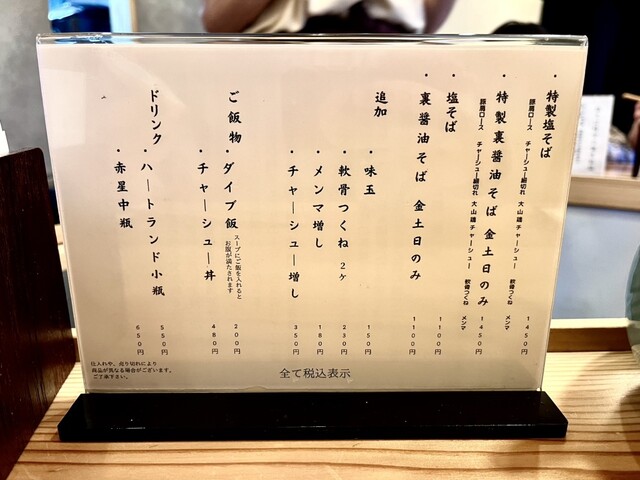 ・特製塩そば 1450円
豚肩ロース チャーシュー細切れ 大山鶏チャーシュー 軟骨つくね メンマ
・特製裏醤油そば 金土日のみ 1450円
豚肩ロース チャーシュー細切れ 大山鶏チャーシュー 軟骨つくね メンマ
・塩そば 1100円
・裏醤油そば 金土日のみ 1100円
追加
・味玉 150円
・軟骨つくね 2ケ 230円
・メンマ増し 180円
・チャーシュー増し 350円
ご飯物
・ダイブ飯 200円
スープにご飯を入れると
お腹が満たされます
・チャーシュー丼 480円
ドリンク
・ハートランド小瓶 550円
・赤星中瓶 650円
仕入れや、売り切れにより
商品が異なる場合がございます。
ご了承下さい。
全て税込表示